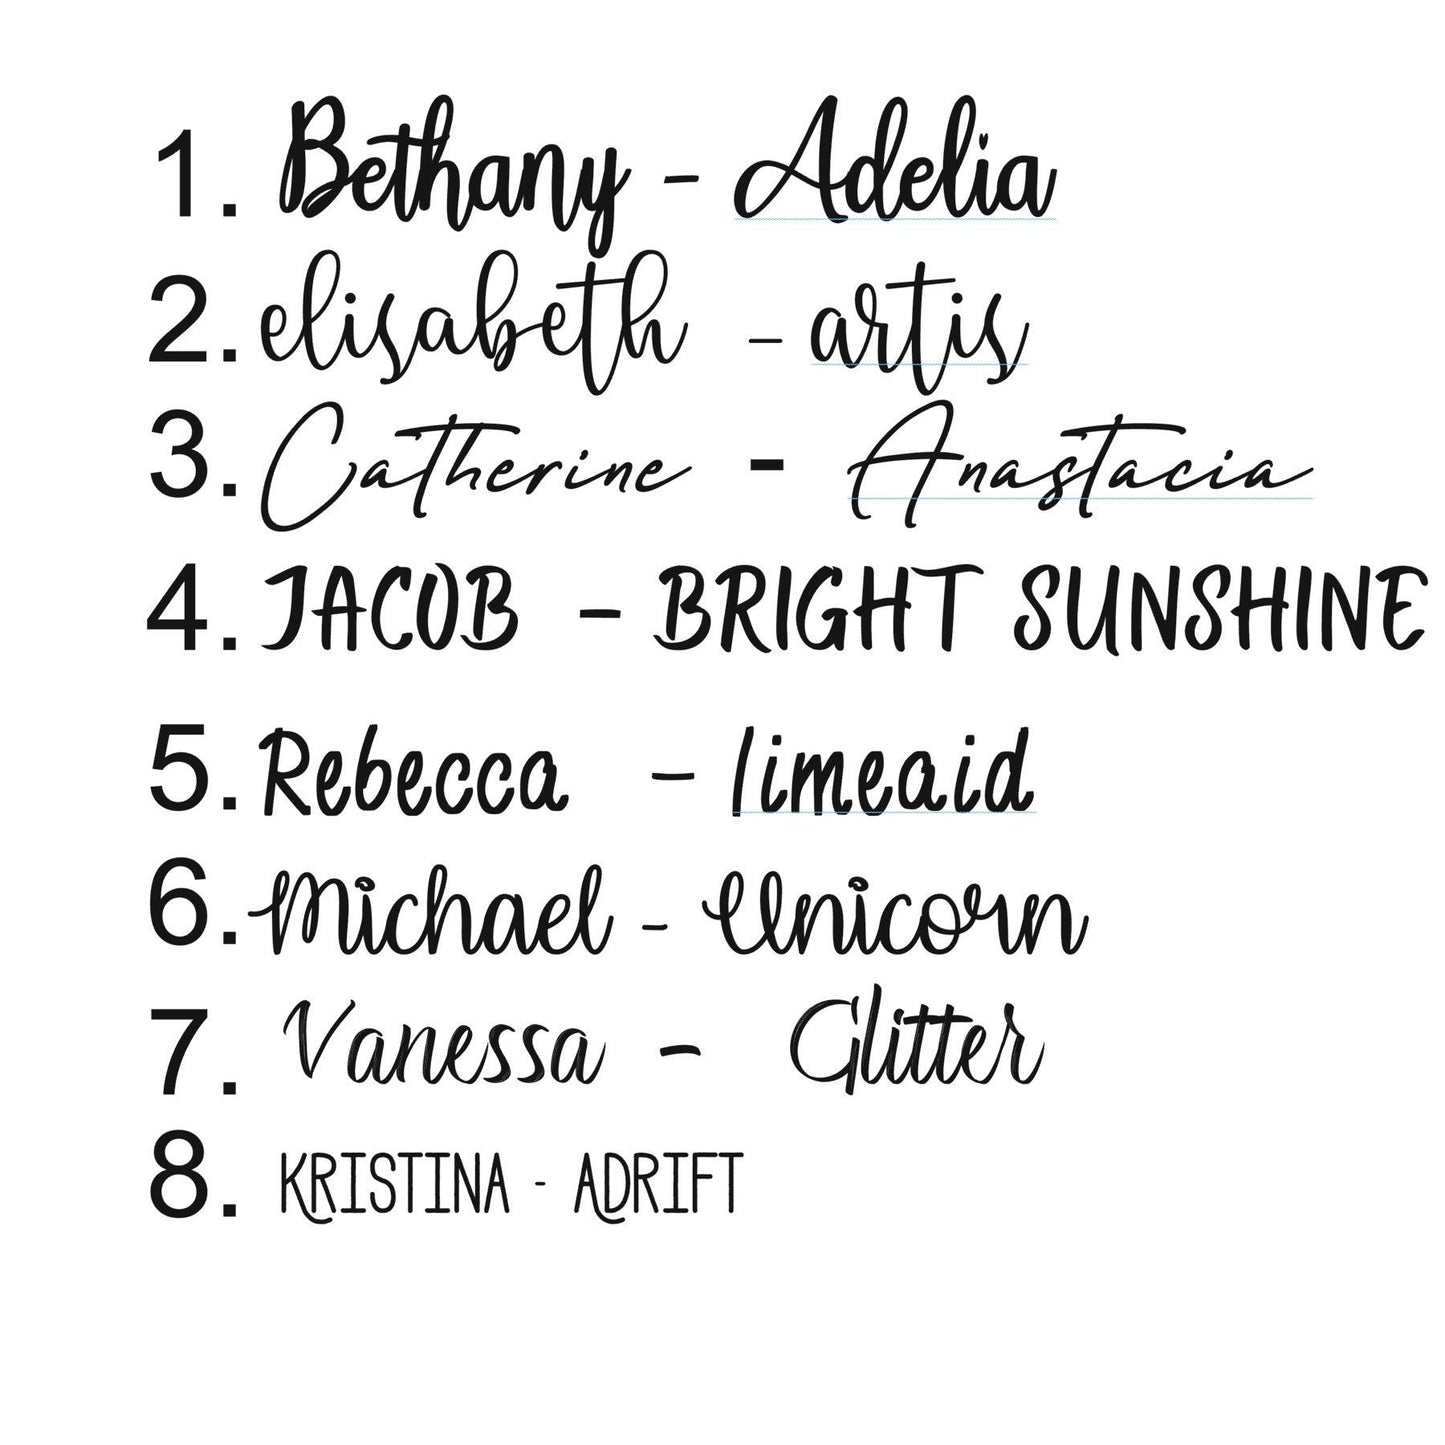 1. Bethany - Adelia
2. elisabeth - artis
3. Catherine - Anastacia
4. JACOB - BRIGHT SUNSHINE
5. Rebecca - limeaid
6. Michael - Unicorn
7. Vanessa - Glitter
8. KRISTINA - ADRIFT